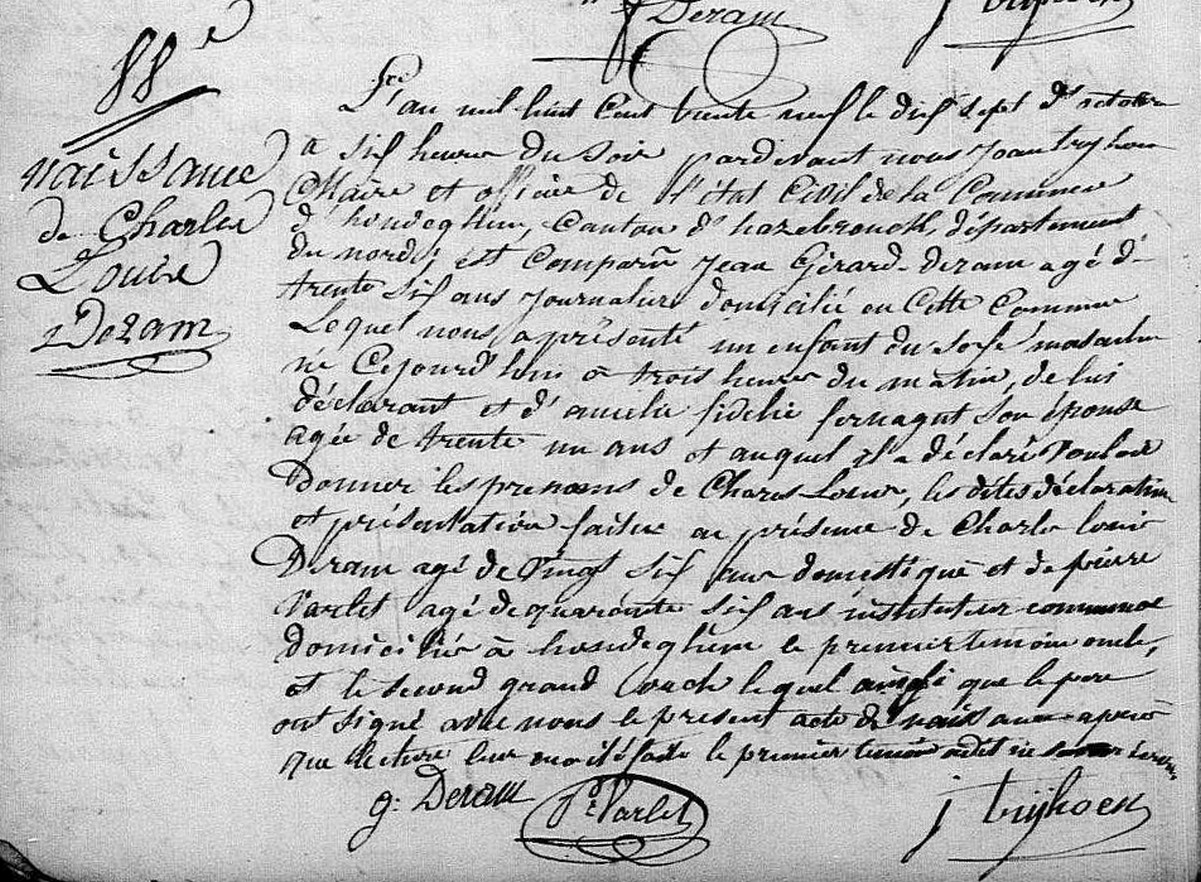 Deram
J Truyhoen
88e
naissance
de Charles
Louis
Deram
L'an mil huit Cent trente neuf le dix sept d' octobre
a six heures du soir pardevant nous Jean truyhoen
Maire et officier de l'état Civil de la Commune
d'hondeghem, Canton d'hazebrouck, département
du nord, est Comparu Jean Gérard deram agé de
trente six ans Journalier domicilié en Cette Commune
Lequel nous a présenté un enfant du sexe masculin
né Cejourd'hui à trois heures du matin, de lui
déclarant et d'amelie fidelie fernagut son épouse
agée de trente un ans et auquel il a déclaré Vouloir
Donner les prenoms de Chares Louis, les dites déclaration
et présentation faites en présence de Charles louis
Deram agé de Vingt six ans domestique et de pierre
Varlet agé de quarante six ans instituteur communal
domiciliés à hondeghem le premier temoin oncle,
et le second grand lequel ainsi que le pere
ont signé avec nous le present acte de naissance après
que lecture leur en a été faite le premier temoin a dit ne
g: Deram Pre Varlet J Truyhoen